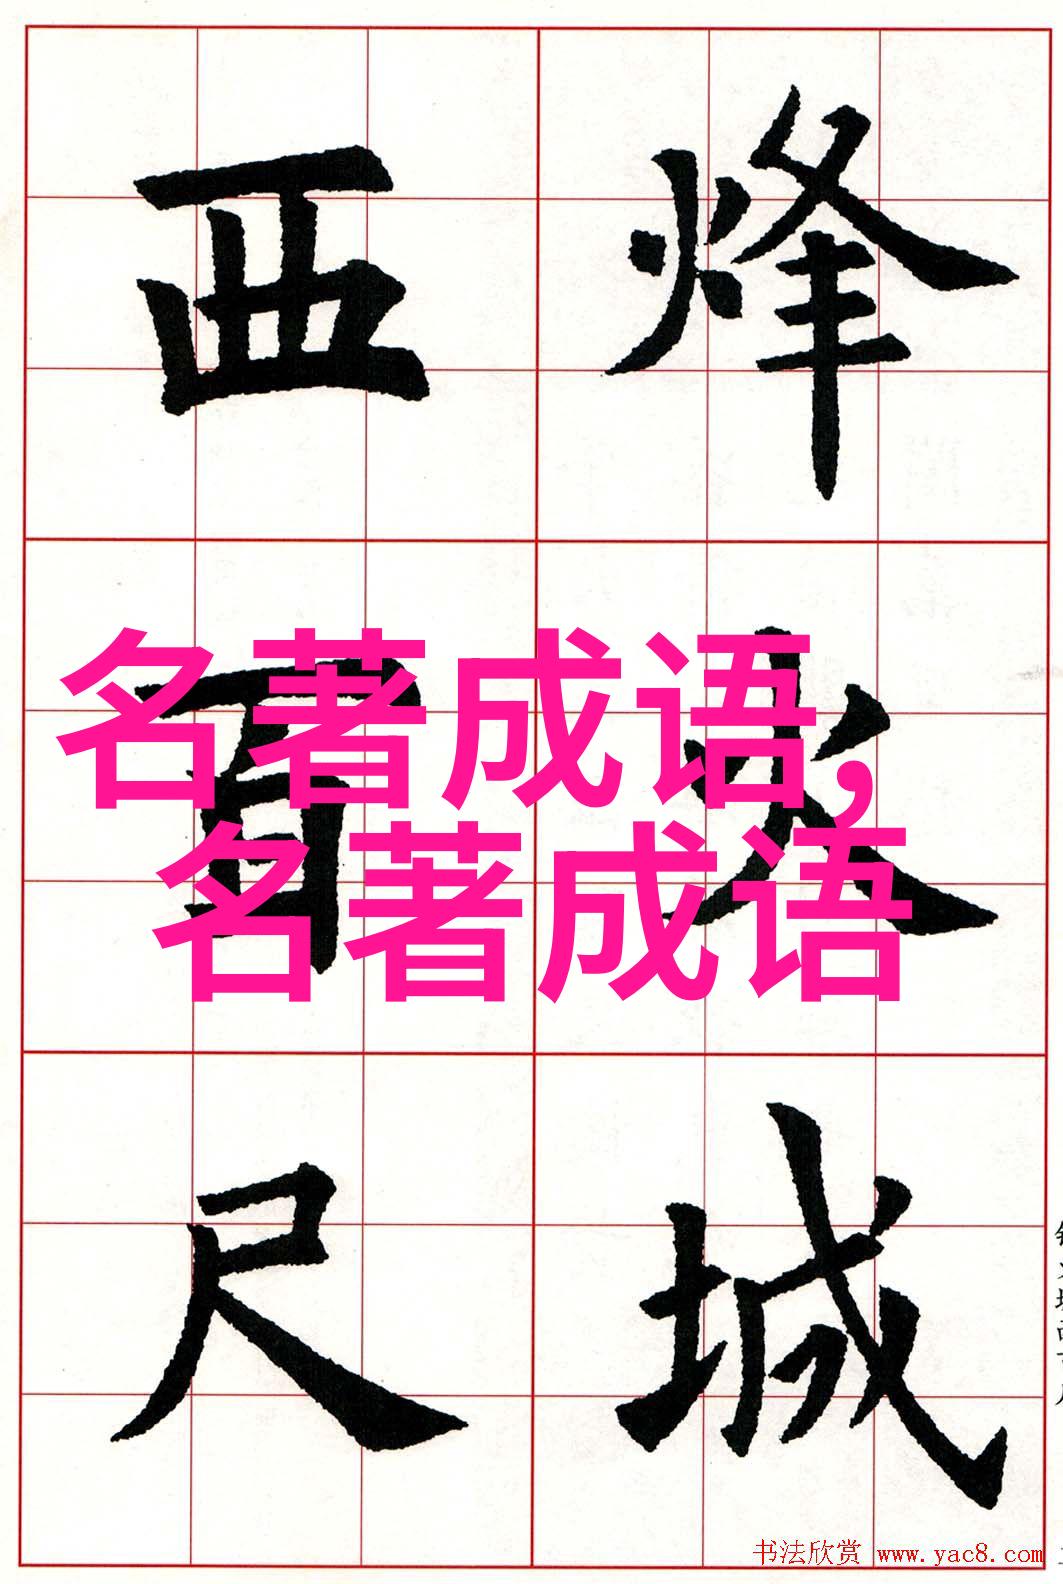 烽火城
西百尺
名著成语,
名著成语
书法欣赏 www.yac8.com